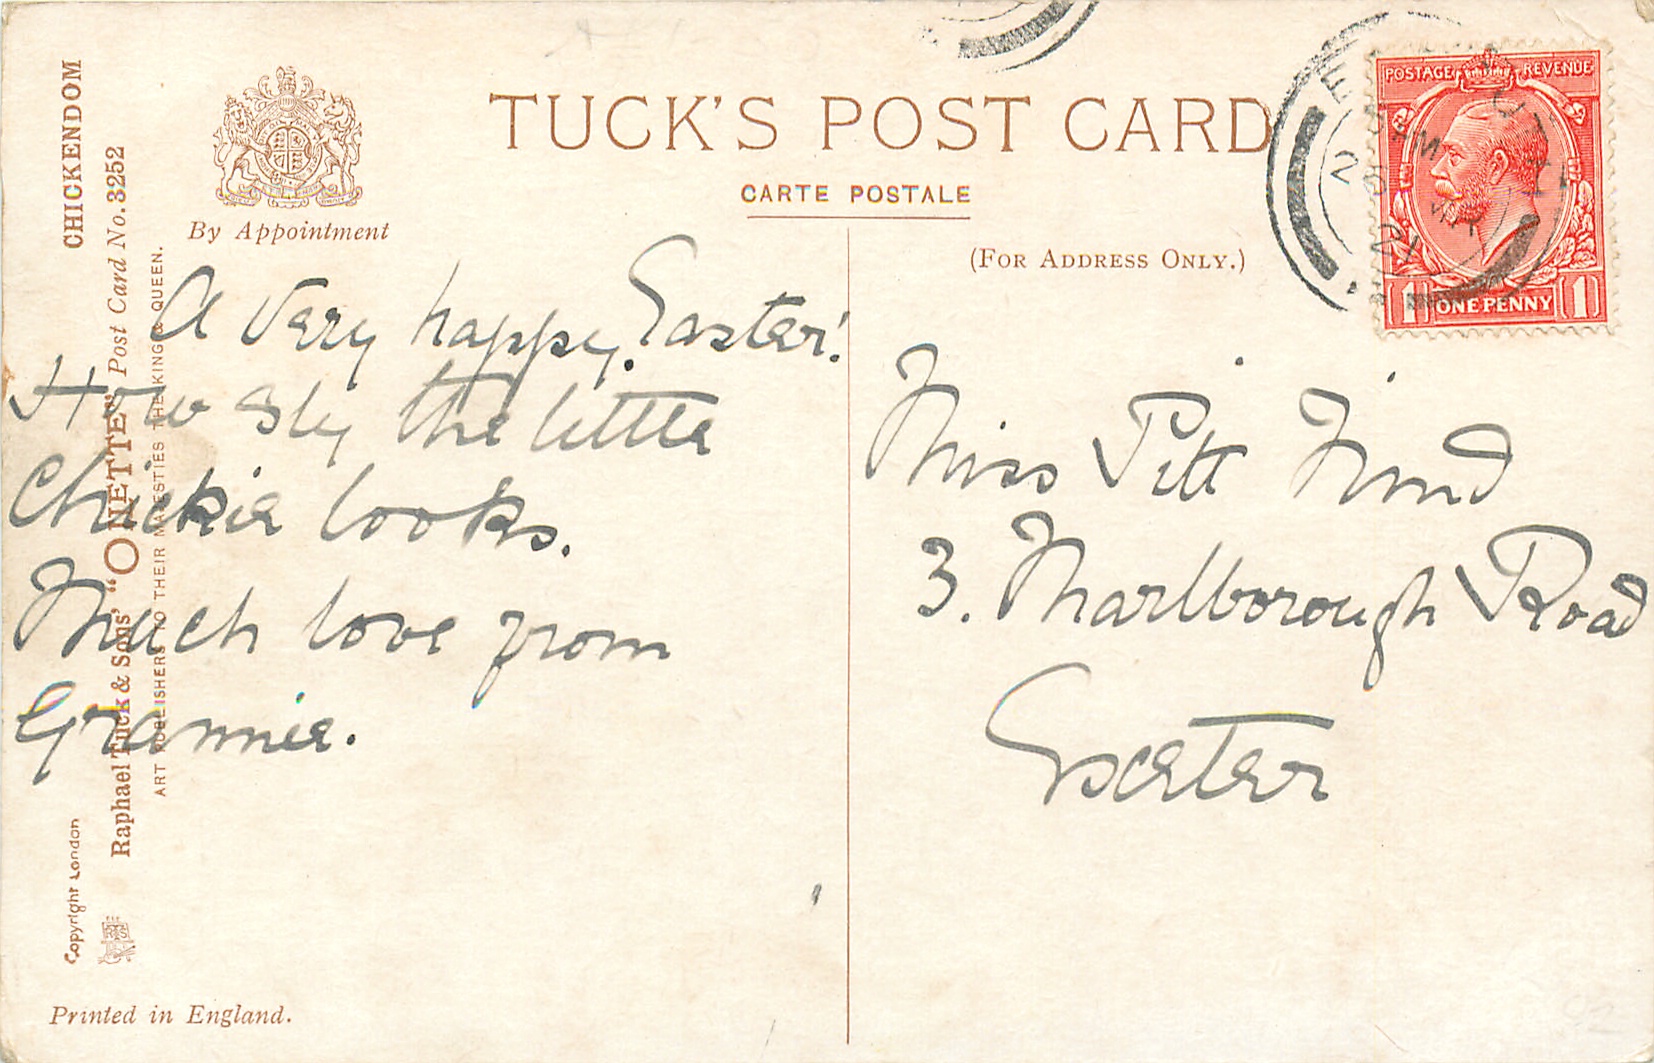 CHICKENDOM
Raphael Tuck & Sons' "ONETTE" Post Card No. 3252
ART PUBLISHERS TO THEIR MAJESTIES THE KING & QUEEN.
Copyright London
By Appointment
TUCK'S POST CARD
CARTE POSTALE
(FOR ADDRESS ONLY.)
POSTAGE REVENUE
1 ONE PENNY 1
21
A very happy Easter!
How sly the little
Chickie looks.
Much love from
Grannie.
Miss Pitt
3. Marlborough Road
Exeter
Printed in England.